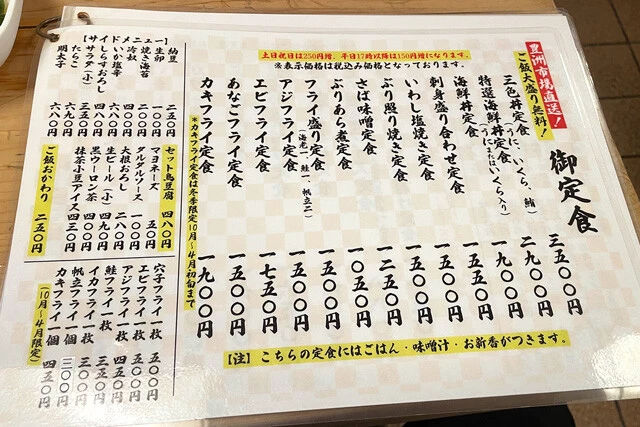 豊洲市場直送！
ご飯大盛り無料！
御定食
土日祝日は250円増、平日17時以降は150円増になります。
※表示価格は税込み価格となっております。
三色丼定食(うに、いくら、鮪) 三五〇〇円
特選海鮮丼定食(うにまたはいくら入り) 二九〇〇円
海鮮丼定食 一九〇〇円
刺身盛り合わせ定食 一五〇〇円
いわし塩焼き定食 一五〇〇円
ぶり照り焼き定食 一五〇〇円
さば味噌定食
ぶりあら煮定食 一〇五〇円
フライ盛り定食(海老一、鮭一、帆立二) 一五〇〇円
アジフライ定食 一五〇〇円
エビフライ定食 一七五〇円
あなごフライ定食 一五〇〇円
カキフライ定食 一九〇〇円
※カキフライ定食は冬季限定10月〜4月初旬まで
【注】こちらの定食にはごはん・味噌汁・お新香がつきます。
【サイドメニュー】
納豆 二五〇
生卵 一〇〇
焼き海苔 一〇〇
冷奴 二〇〇
いか塩辛 四八〇
しらすおろし
サラダ(小) 三五〇
たらこ 六九〇
明太子 六八〇円
セット鳥豆腐 四八〇円
マヨネーズ 五〇円
タルタルソース 一〇〇円
大根おろし 二八〇円
生ビール(小) 四九〇円
黒ウーロン茶 四〇〇円
抹茶小豆アイス 四三〇円
ご飯おかわり 二五〇円
穴子フライ一枚 五〇〇円
エビフライ一枚 五〇〇円
アジフライ一枚 四五〇円
鮭フライ一枚 三五〇円
イカフライ一枚 三〇〇円
帆立フライ一個 三〇〇円
カキフライ一個 四五〇円
(10月〜4月限定)